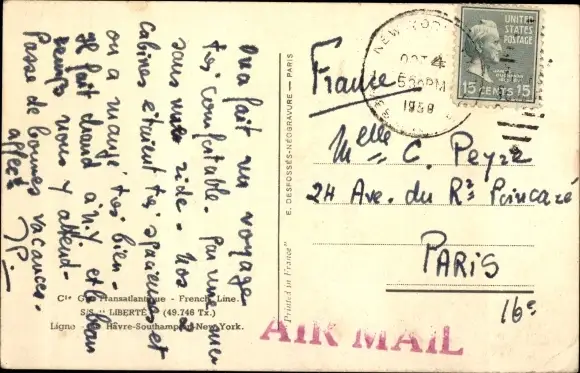 On a fait un voyage
très confortable. Par une mer
sans une ride. Nos 2
cabines étaient très spacieuses et
on a mangé très bien.
Il fait chaud à N.Y. et le beau
temps nous y attend.
Passe de bonnes vacances.
affect.
JP.
Cie Gle Transatlantique - French Line.
S/S "LIBERTÉ" (49.746 Tx.)
Ligne Hâvre-Southampton-New-York.
Printed in France"
E. DESFOSSÉS-NÉOGRAVURE — PARIS
NEW YORK
OCT 4
5 PM
1959
UNITED
STATES
POSTAGE
15 CENTS 15
France
Melle C. Peyre
24 Ave. du Rd Poincaré
PARIS
16e
AIR MAIL